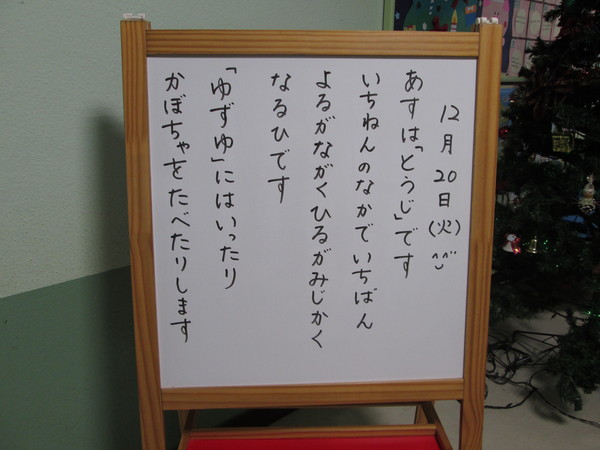 12月20日(火)^^
あすは「とうじ」です
いちねんのなかでいちばん
よるがながくひるがみじかく
なるひです
「ゆずゆ」にはいったり
かぼちゃをたべたりします